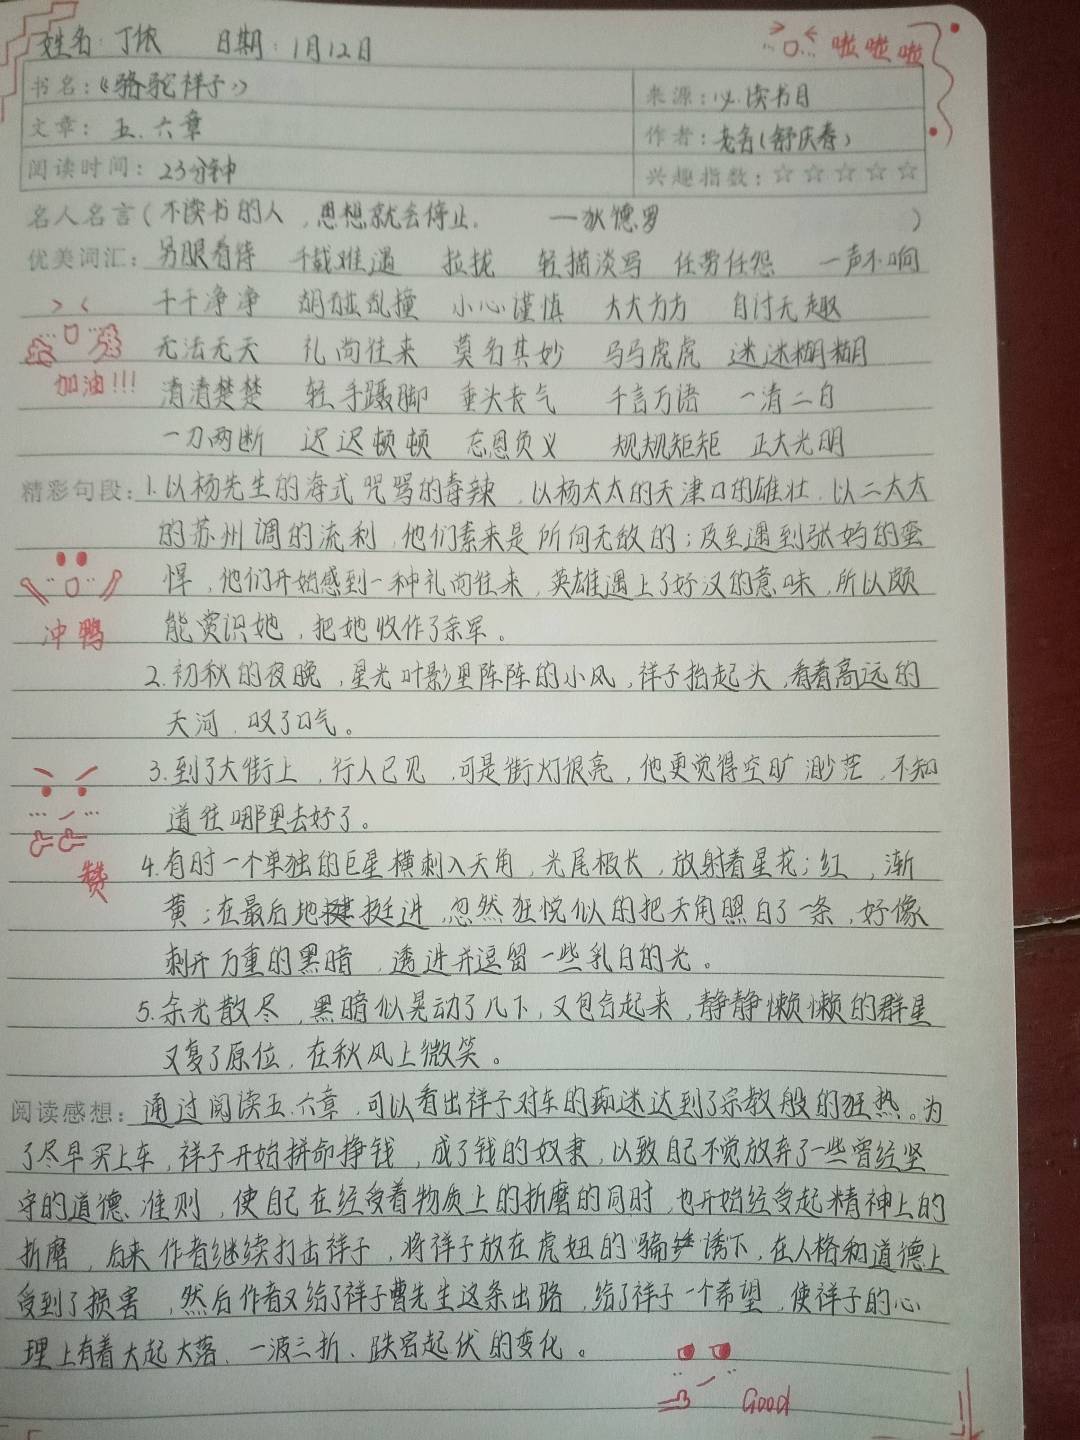 姓名：丁依 日期：1月12日
啦啦啦
书名：《骆驼祥子》 来源：必读书目
文章：五、六章 作者：老舍（舒庆春）
阅读时间：23分钟 兴趣指数：☆☆☆☆☆
名人名言（不读书的人，思想就会停止。 —狄德罗 ）
优美词汇：另眼看待 千载难遇 拉拢 轻描淡写 任劳任怨 一声不响
干干净净 胡碰乱撞 小心谨慎 大大方方 自讨无趣
无法无天 礼尚往来 莫名其妙 马马虎虎 迷迷糊糊
加油!!!
清清楚楚 轻手蹑脚 垂头丧气 千言万语 一清二白
一刀两断 迟迟顿顿 忘恩负义 规规矩矩 正大光明
精彩句段：1.以杨先生的海式咒骂的毒辣，以杨太太的天津口的雄壮，以二太太
的苏州调的流利，他们素来是所向无敌的；及至遇到张妈的蛮
悍，他们开始感到一种礼尚往来，英雄遇上了好汉的意味，所以颇
冲鸭
能赏识她，把她收作了亲军。
2.初秋的夜晚，星光叶影里阵阵的小风，祥子抬起头，看着高远的
天河，叹了口气。
3.到了大街上，行人已见，可是街灯很亮，他更觉得空旷渺茫，不知
道往哪里去好了。
赞
4.有时一个单独的巨星横刺入天角，光尾极长，放射着星花；红，渐
黄；在最后地挺进，忽然狂悦似的把天角照白了一条，好像
刺开万重的黑暗，透进并逗留一些乳白的光。
5.余光散尽，黑暗似晃动了几下，又包合起来，静静懒懒的群星
又复了原位，在秋风上微笑。
阅读感想：通过阅读五、六章，可以看出祥子对车的痴迷达到了宗教般的狂热。为
了尽早买上车，祥子开始拼命挣钱，成了钱的奴隶，以致自己不觉放弃了一些曾经坚
守的道德、准则，使自己在经受着物质上的折磨的同时，也开始经受起精神上的
折磨，后来作者继续打击祥子，将祥子放在虎妞的骗诱下，在人格和道德上
受到了损害，然后作者又给了祥子曹先生这条出路，给了祥子一个希望，使祥子的心
理上有着大起大落、一波三折、跌宕起伏的变化。
Good